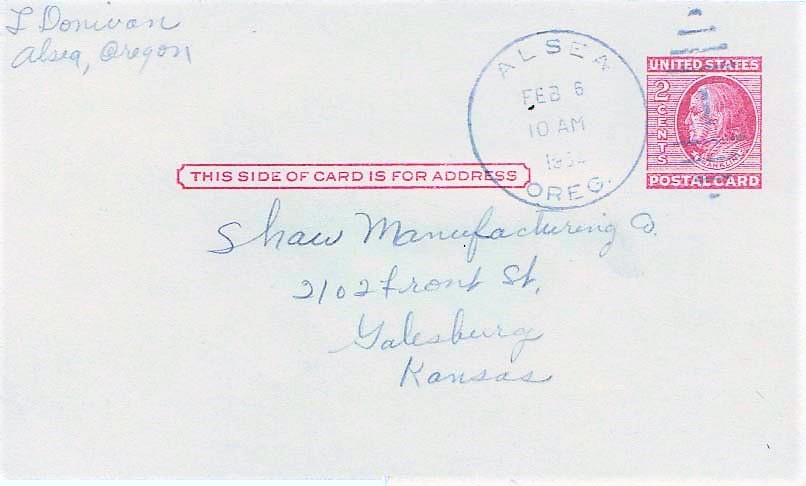 L Donivan
Alsea, Oregon
ALSEA
FEB 6
10 AM
OREG.
UNITED STATES
2 CENTS
POSTAL CARD
THIS SIDE OF CARD IS FOR ADDRESS
Shaw Manufacturing Co.
2102 Front St,
Galesburg
Kansas